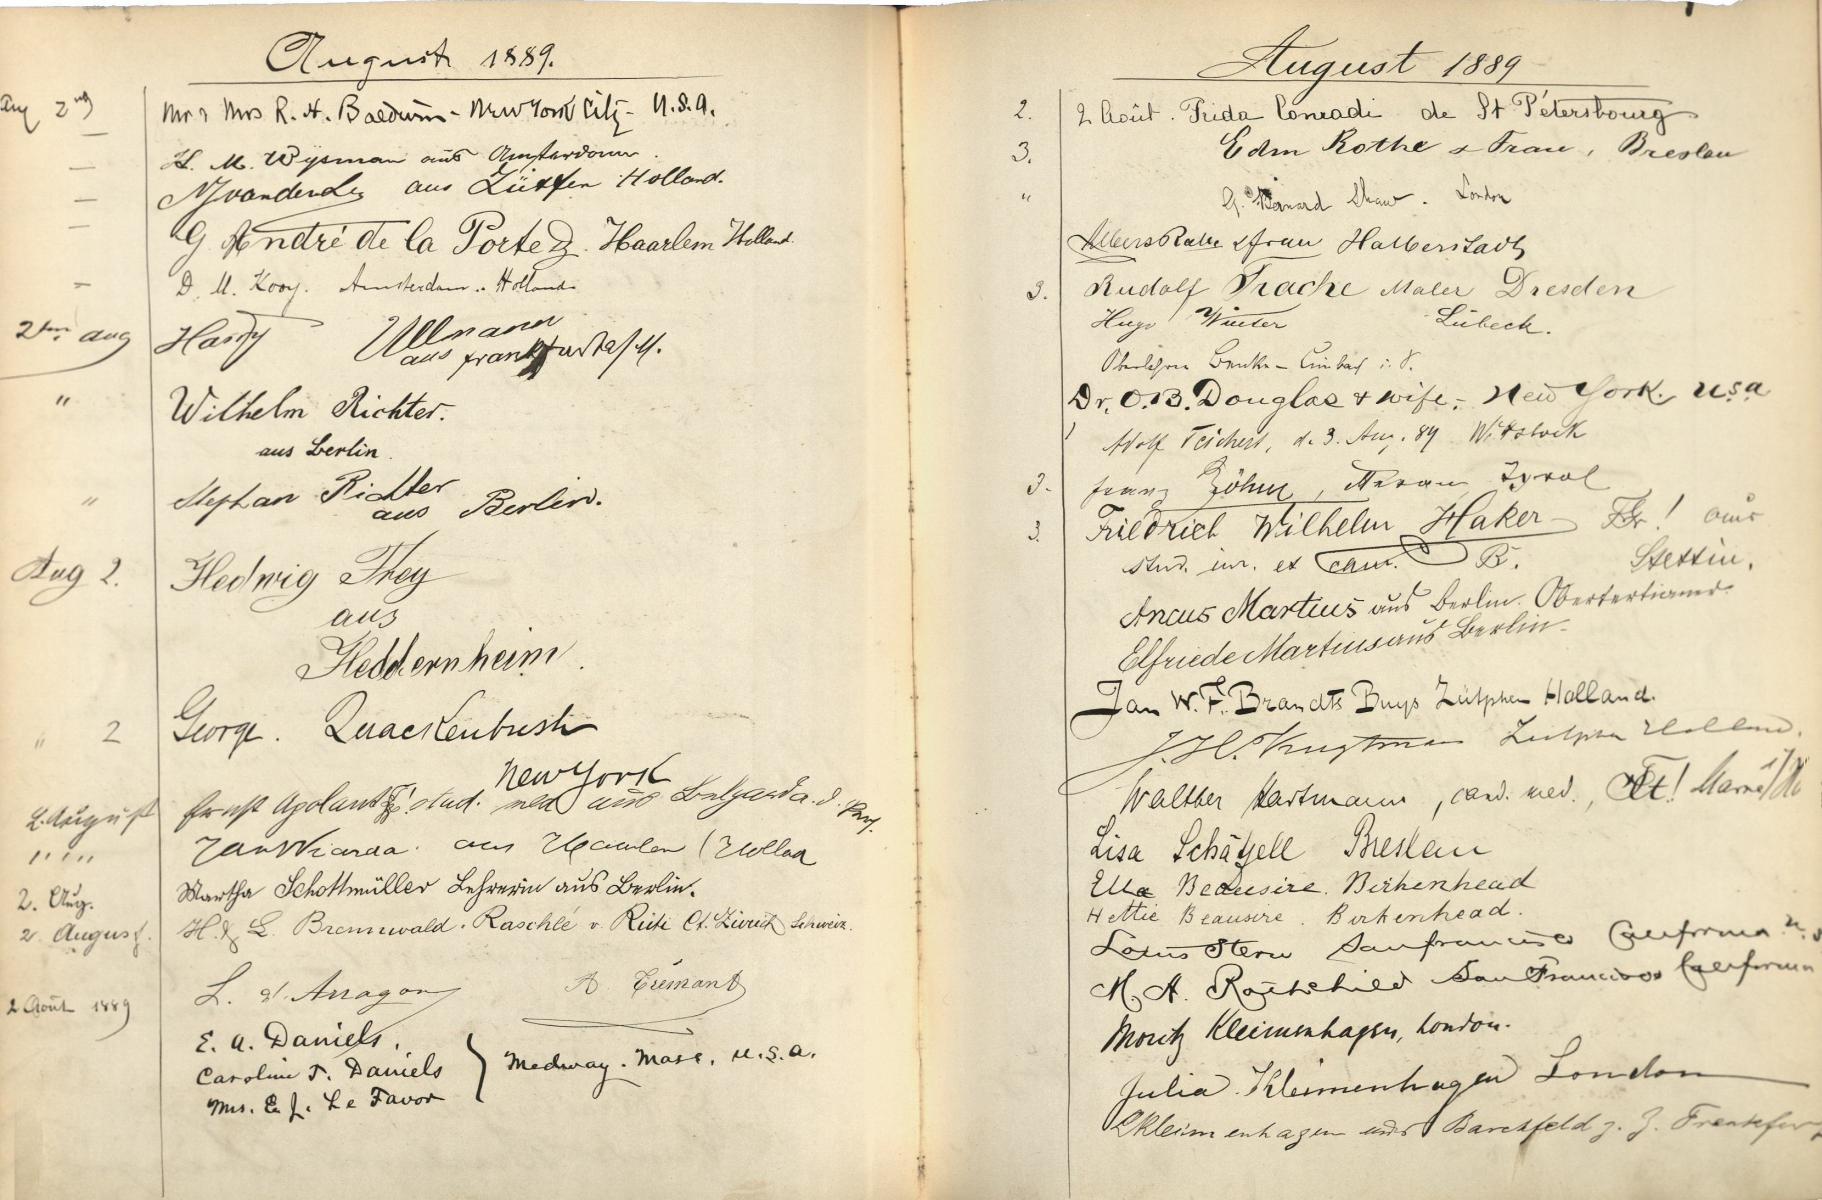 August 1889.
Aug 2nd Mr & Mrs R. H. Baldwin - New York City - U.S.A.
— H. M. Wijsman aus Amsterdam.
— aus Zütfen Holland.
— G. André de la Porte Haarlem Holland.
— D. M. Kooy. Amsterdam. Holland
2ten aug Harry Ullmann
aus Frankfurt a/M.
" Wilhelm Richter.
aus Berlin.
" Stephan Richter
aus Berlin.
Aug 2. Hedwig They
aus
Heddernheim.
" 2 George. Quackenbush
New York
2. August Ernst stud. med aus Belgard a. d. Pers.
" " " Jan Wiarda. aus Haarlem (Holland
2. Aug. Martha Schottmüller Lehrerin aus Berlin.
2. August. H. & L. Brennwald. Raschlé v. Rüti Ct. Zürich Schweiz.
L. d'Arragon A. Crémant
2 Août 1889
E. A. Daniels.
Caroline T. Daniels Medway. Mass. U.S.A.
Mrs. E. J. Le Favor
August 1889
2. 2 Août. Frida Conradi de St Pétersbourg
3. Edm Rothe & Frau, Breslau
" G. Bernard Shaw. London
& Frau Halberstadt
3. Rudolf Trache Maler Dresden
Hugo Winter Lübeck.
Oberlehrer
Dr. O. B. Douglas & wife, - New York. U.S.A
Adolf Teichert, d. 3. Aug. 89 Wittstock
3. Franz Böhm, Meran, Tyrol
3. Friedrich Wilhelm Haker aus
stud. iur. et cam. B. Stettin.
Ancus Martius aus Berlin. Obertertianer.
Elfriede Martius aus Berlin.
Jan W. F. Brandts Buys Zütphen Holland.
Zutphen Holland.
Walther Hartmann, cand. med.,
Lisa Schätzell Breslau
Ella Beausire. Birkenhead
Hettie Beausire. Birkenhead.
Louis Stern San Francisco California U. S
M. A. Rothchild San Francisco California
Moritz Kleimenhagen, London.
Julia Kleimenhagen London
L Kleimenhagen aus Barchfeld z. Z. Frankfurt